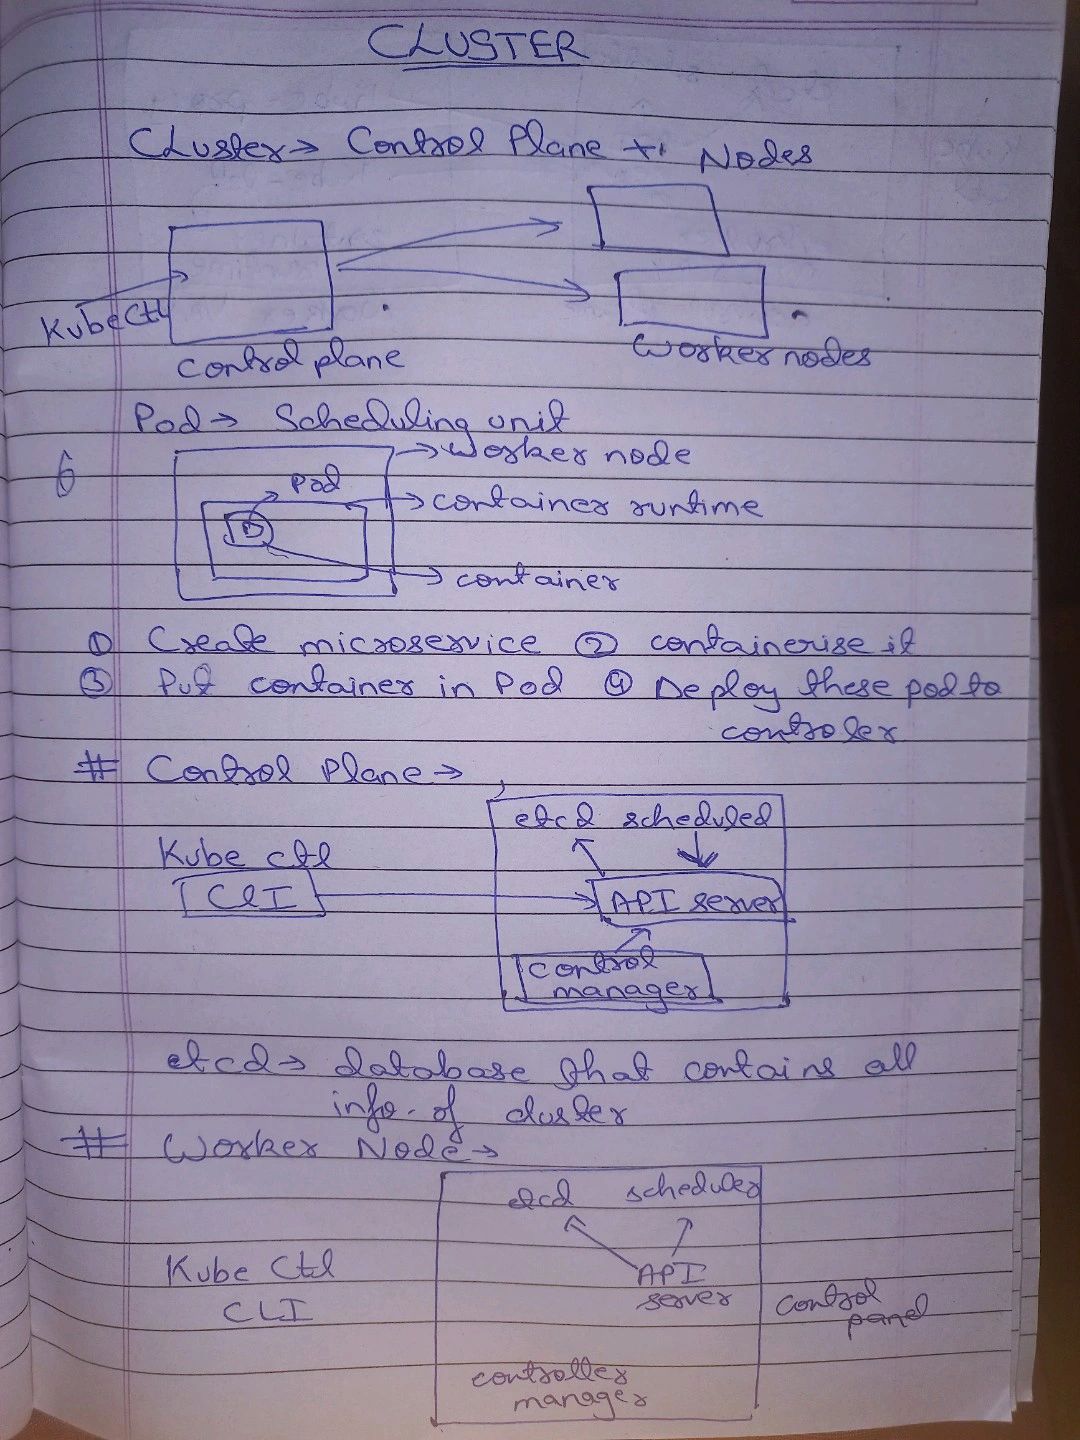 CLUSTER
Cluster → Control Plane + Nodes
KubeCtl
Control plane
Worker nodes
Pod → Scheduling unit
→ worker node
Pod
→ container runtime
→ container
① Create microservice ② containerise it
③ Put container in Pod ④ Deploy these pod to
controler
# Control Plane →
etcd scheduled
Kube ctl
CLI
API server
control
manager
etcd → database that contains all
info. of cluster
# Worker Node →
etcd scheduler
Kube Ctl
API
CLI
server
control
panel
controller
manager